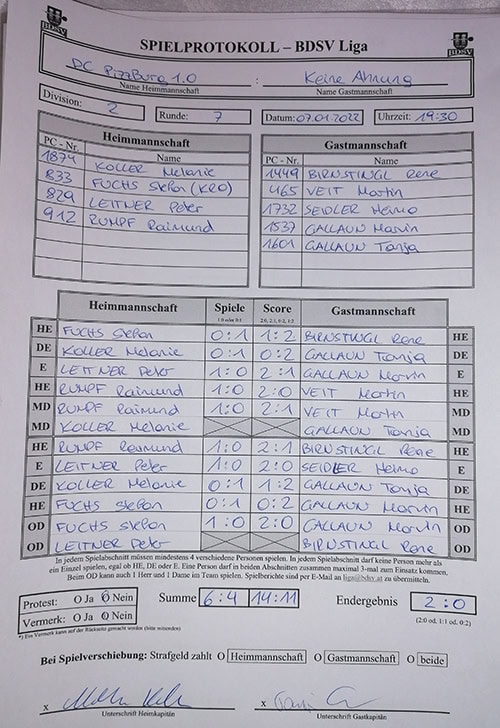 BDSV BDSV
SPIELPROTOKOLL – BDSV Liga
DC PizzBurg 1.0 : Keine Ahnung
Name Heimmannschaft Name Gastmannschaft
Division: 2 Runde: 7 Datum: 07.01.2022 Uhrzeit: 19:30
Heimmannschaft Gastmannschaft
PC - Nr. Name PC - Nr. Name
1874 KOLLER Melanie 1449 BIRNSTINGL Rene
833 FUCHS Stefan (KRO) 465 VEIT Martin
829 LEITNER Peter 1732 SEIDLER Heimo
912 RUMPF Raimund 1537 GALLAUN Marvin
1601 GALLAUN Tanja
Heimmannschaft Spiele Score Gastmannschaft
1:0 oder 0:1 2:0, 2:1, 0:2, 1:2
HE FUCHS Stefan 0:1 1:2 BIRNSTINGL Rene HE
DE KOLLER Melanie 0:1 0:2 GALLAUN Tanja DE
E LEITNER Peter 1:0 2:1 GALLAUN Marvin E
HE RUMPF Raimund 1:0 2:0 VEIT Martin HE
MD RUMPF Raimund 1:0 2:1 VEIT Martin MD
MD KOLLER Melanie GALLAUN Tanja MD
HE RUMPF Raimund 1:0 2:1 BIRNSTINGL Rene HE
E LEITNER Peter 1:0 2:0 SEIDLER Heimo E
DE KOLLER Melanie 0:1 1:2 GALLAUN Tanja DE
HE FUCHS Stefan 0:1 0:2 GALLAUN Marvin HE
OD FUCHS Stefan 1:0 2:0 GALLAUN Marvin OD
OD LEITNER Peter BIRNSTINGL Rene OD
In jedem Spielabschnitt müssen mindestens 4 verschiedene Personen spielen. In jedem Spielabschnitt darf keine Person mehr als
ein Einzel spielen, egal ob HE, DE oder E. Eine Person darf in beiden Abschnitten zusammen maximal 3-mal zum Einsatz kommen.
Beim OD kann auch 1 Herr und 1 Dame im Team spielen. Spielberichte sind per E-Mail an liga@bdsv.at zu übermitteln.
Protest: O Ja O Nein Summe 6:4 14:11 Endergebnis 2:0
Vermerk: O Ja O Nein (2:0 od. 1:1 od. 0:2)
*) Ein Vermerk kann auf der Rückseite gemacht werden (bitte umseiten)
Bei Spielverschiebung: Strafgeld zahlt O Heimmannschaft O Gastmannschaft O beide
x x
Unterschrift Heimkapitän Unterschrift Gastkapitän